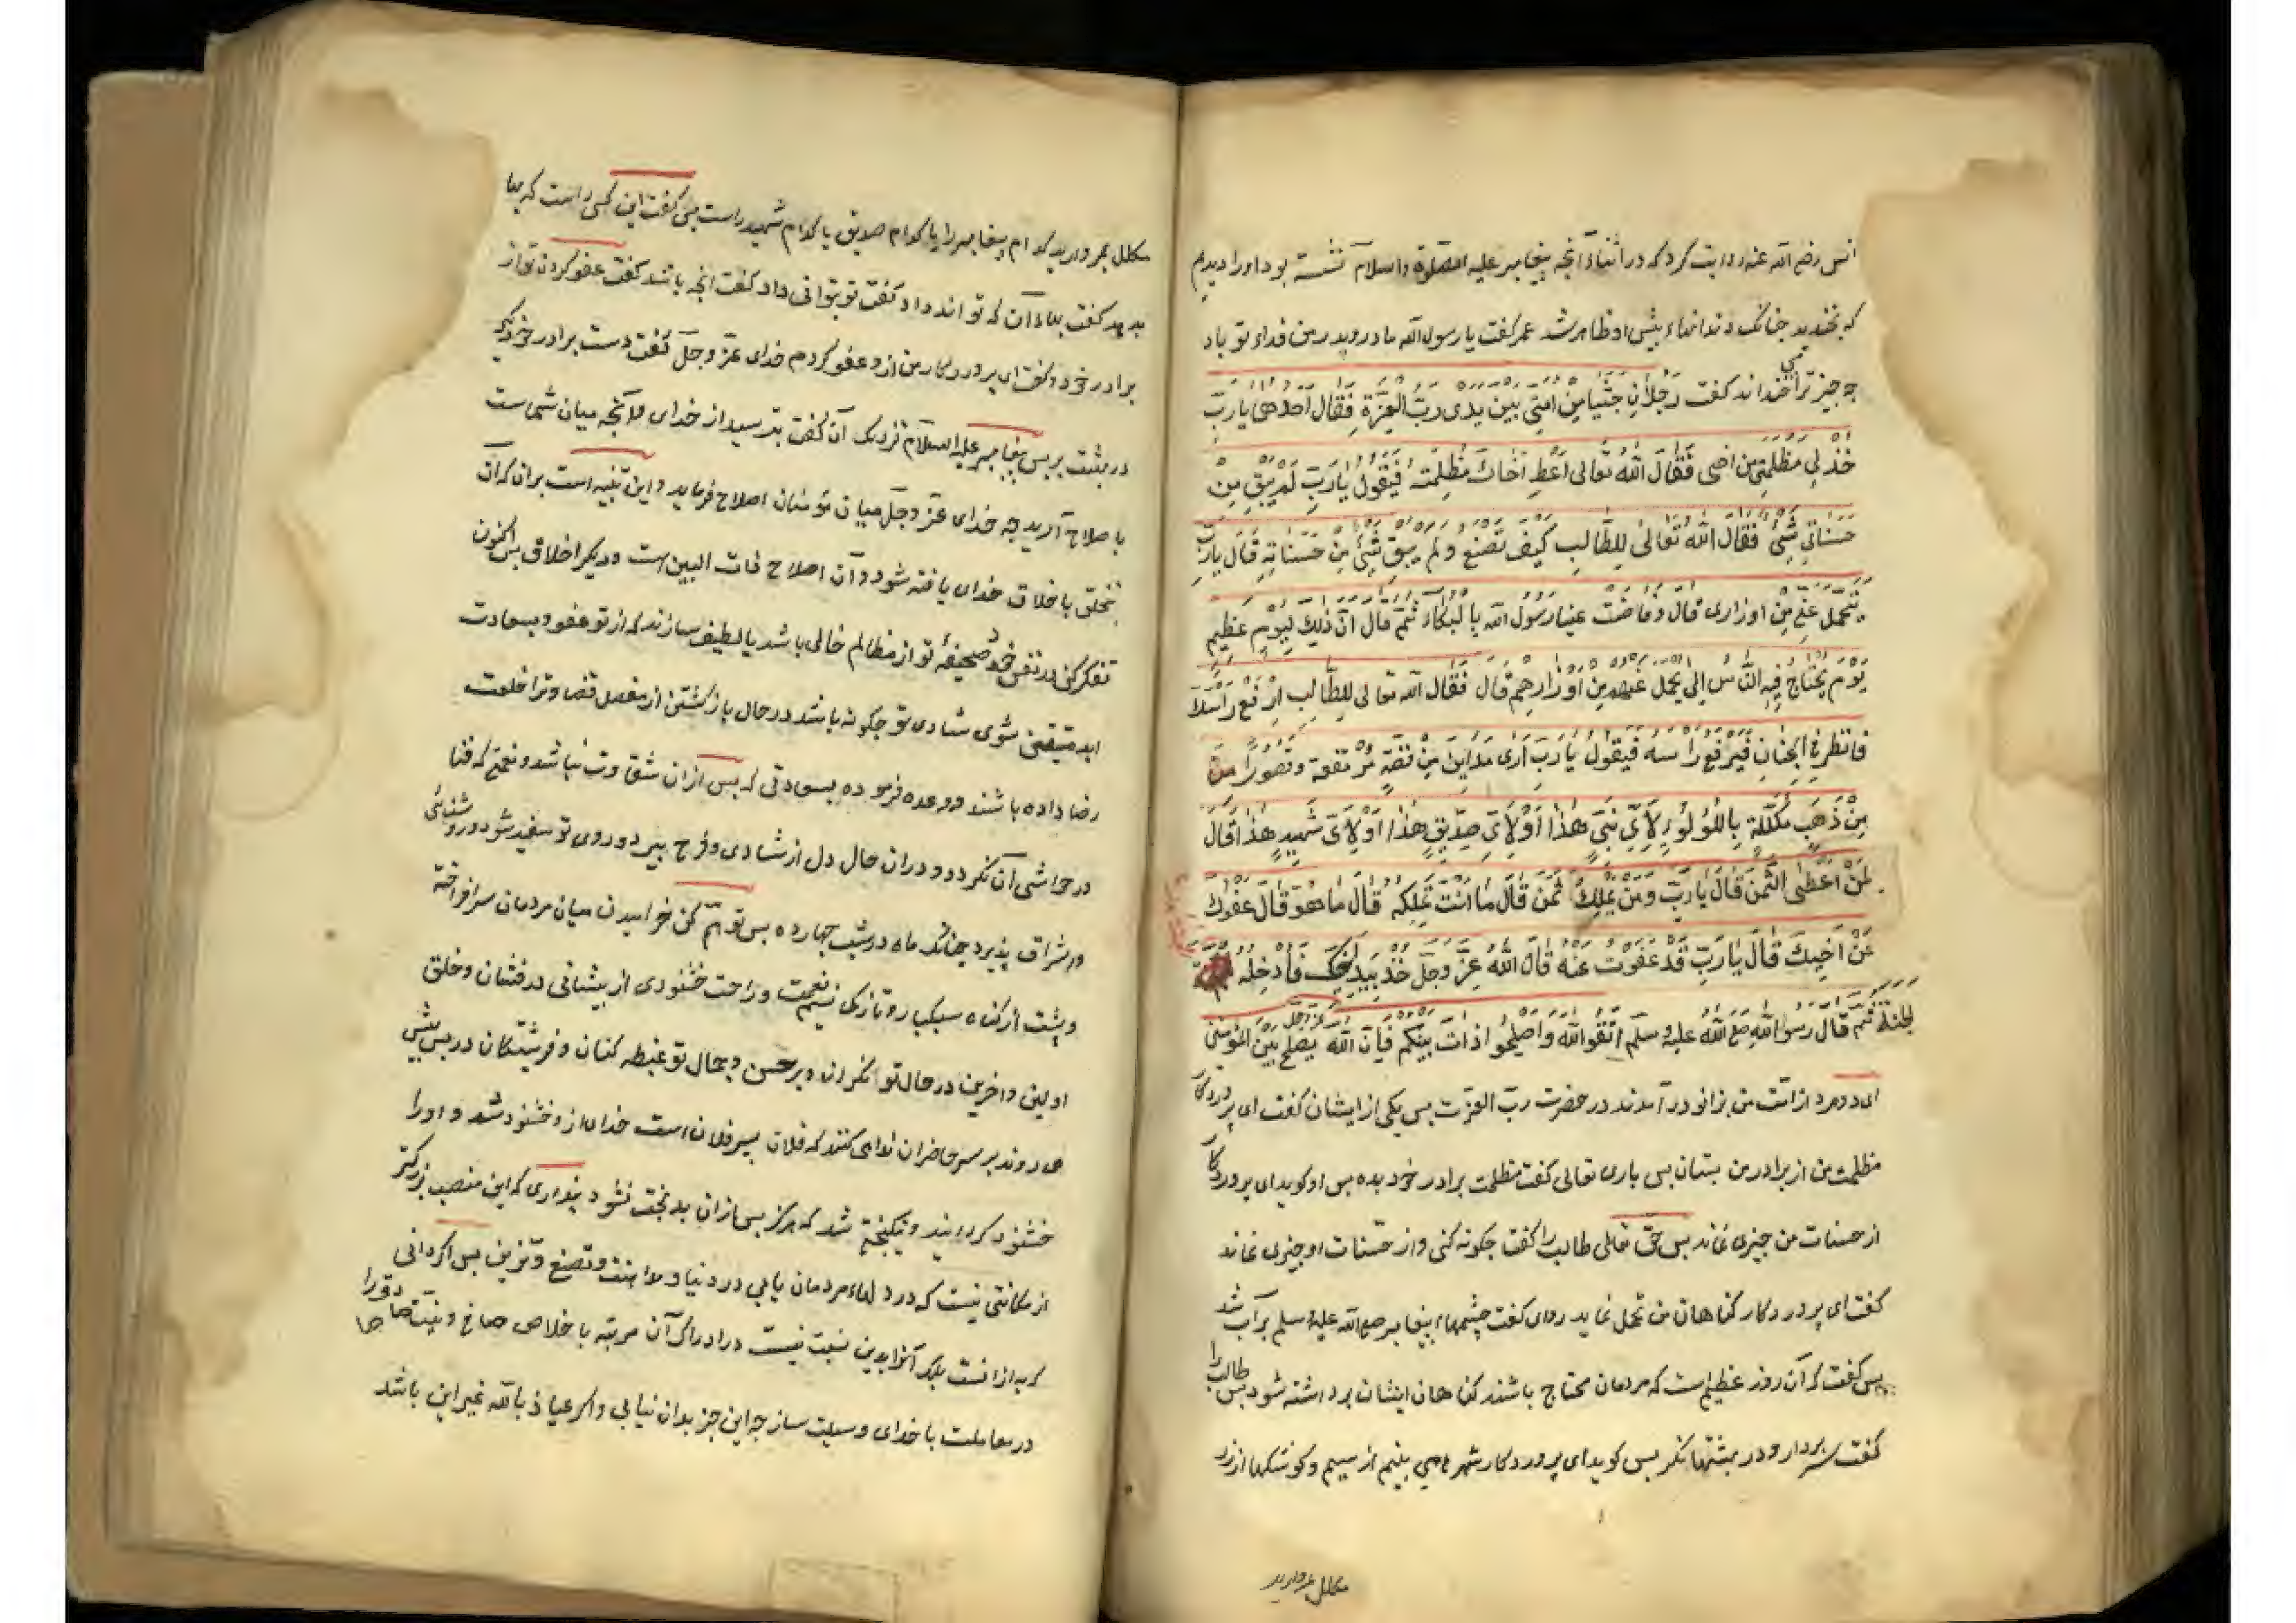 انس رضی الله عنه روایت کرد که در اثناء آنچه پیغامبر علیه الصلوة والسلام نشسته بود او را دیدیم
که بخندید چنانک دندانهاء پیش او ظاهر شد عمر گفت یا رسول الله مادر و پدر من فداء تو باد
چه چیز ترا می خنداند گفت رَجُلَانِ جَثَیَا مِنْ اُمَّتِی بَیْنَ یَدَی رَبِّ الْعِزَّةِ فَقَالَ اَحَدُهُمَا یَا رَبِّ
خُذْ لِی مَظْلِمَتِی مِنْ اَخِی فَقَالَ اللهُ تَعَالی اَعْطِ اَخَاكَ مَظْلِمَتَهُ فَیَقُولُ یَا رَبِّ لَمْ یَبْقَ مِنْ
حَسَنَاتِی شَیْءٌ فَقَالَ اللهُ تَعَالی لِلطَّالِبِ كَیْفَ تَصْنَعُ وَلَمْ یَبْقَ شَیْءٌ مِنْ حَسَنَاتِهِ قَالَ یَا رَبِّ
یَتَحَمَّلُ عَنِّی مِنْ اَوْزَارِی قَالَ وَفَاضَتْ عَیْنَا رَسُولِ الله بِالْبُكَاءِ ثُمَّ قَالَ اِنَّ ذٰلِكَ لَیَوْمٌ عَظِیمٌ
یَوْمَ یَحْتَاجُ فِیهِ النَّاسُ اِلی یحمل عَنْهُمْ مِنْ اَوْزَارِهِمْ قَالَ فَقَالَ الله تعالی لِلطَّالِبِ اِرْفَعْ رَأْسَكَ
فَانْظُرْ فِی الْجِنَانِ فَیَرْفَعُ رَأْسَهُ فَیَقُولُ یَا رَبِّ اَرَی مَدَایِنَ مِنْ فِضَّةٍ مُرْتَفِعَة وَقُصُورًا
مِنْ ذَهَبٍ مُكَلَّلَةً بِاللُّؤْلُؤِ لِاَیِّ نَبِیٍّ هٰذَا اَوْ لِاَیِّ صِدِّیقٍ هٰذَا اَوْ لِاَیِّ شَهِیدٍ هٰذَا قَالَ
لِمَنْ اَعْطَی الثَّمَنَ قَالَ یَا رَبِّ وَمَنْ یَمْلِكُ ثَمَنَ قَالَ مَا اَنْتَ تَمْلِكُهُ قَالَ مَا هُوَ قَالَ عَفْوُكَ
عَنْ اَخِیكَ قَالَ یَا رَبِّ قَدْ عَفَوْتُ عَنْهُ قَالَ اللهُ عَزَّ وَجَلَّ خُذْ بِیَدِ اَخِیكَ فَاَدْخِلْهُ
الجنة ثُمَّ قَالَ رَسُولُ اللهِ صَلَّی اللهُ عَلَیْهِ وَسَلَّم اتَّقُوا اللهَ وَاَصْلِحُوا ذَاتَ بَیْنِكُمْ فَاِنَّ اللهَ عز وجل یُصْلِحُ بَیْنَ الْمُؤْمِنِین
ای دو مرد از امت من بزانو در آمدند در حضرت ربّ العزت پس یکی از ایشان گفت ای پروردگار
مظلمت من از برادر من بستان پس باری تعالی گفت مظلمت برادر خود بده پس او گوید ای پروردگار
از حسنات من چیزی نماند پس حق تعالی طالب را گفت چگونه کنی و از حسنات او چیزی نماند
گفت ای پروردگار گناهان من تحمل نماید راوی گفت چشمهاء پیغامبر صلی الله علیه وسلم پر آب شد
پس گفت که آن روز عظیم است که مردمان محتاج باشند گناهان ایشان برداشته شود پس طالب را
گفت سر بردار و در بهشتها نگر پس گوید ای پروردگار شهرها می بینم از سیم و کوشکها از زر
مکلل بمروارید
مکلل بمروارید کدام پیغامبر را یا کدام صدیق یا کدام شهید راست پس گفت این کسی راست که بها
بدهد گفت بهاء آن که تواند داد گفت تو بتوانی داد گفت آنچه باشد گفت عفو کردن تو از
برادر خود گفت ای پروردگار من از و عفو کردم خدای عزّ وجلّ گفت دست برادر خود گیر
در بهشت بر پس پیغامبر علیه السلام نزدیک آن گفت بترسید از خدای و آنچه میان شماست
باصلاح آرید چه خدای عزّ وجلّ میان مؤمنان اصلاح فرماید و این تنبیه است بران که آن
بتخلق باخلاق خدای یافته شود و آن اصلاح ذات البین است و دیگر اخلاق پس اکنون
تفکر کن در نفس خود صحیفهٔ تو از مظالم خالی باشد یا لطیف سازند که از تو عفو و بسعادت
ابد متیقن شوی شادی تو چگونه باشد در حال بازگشتن از مفصل قضا و ترا خلعت
رضا داده باشند و وعده فرموده بسعادتی که پس از ان شقاوت نباشد و نعیمی که فنا
در حواشی آن نگردد و دران حال دل از شادی و فرح بپرد و روی تو سفید شود و روشنائی
و اشراق پذیرد چنانک ماه در شب چهارده پس توهّم کن خرامیدن میان مردمان سرافراخته
و پشت از گناه سبکبار و تازگی نسیم نعمت و راحت خشنودی از پیشانی درفشان و خلق
اولین و آخرین در حال تو نگران و بر حسن و جمال تو غبطه کنان و فرشتگان در پس پیش
می روند بر سر حاضران ندا می کنند که فلان پسر فلان است خدای از و خشنود شد و او را
خشنود گردانید و نیکبختی شد که هرگز پس ازان بدبخت نشود پنداری که این منصب بزرگتر
از مکانتی نیست که در دلهاء مردمان یابی در دنیا و مداهنت و تصنع و تزین پس اگر دانی
که به از انست بلکه آنرا بدین نسبت نیست در ادراک آن مرتبه باخلاص صافی و نیت صادق را
در معاملت با خدای وسیلت ساز چه این جز بدان نیابی و اگر عیاذ بالله غیر این باشد